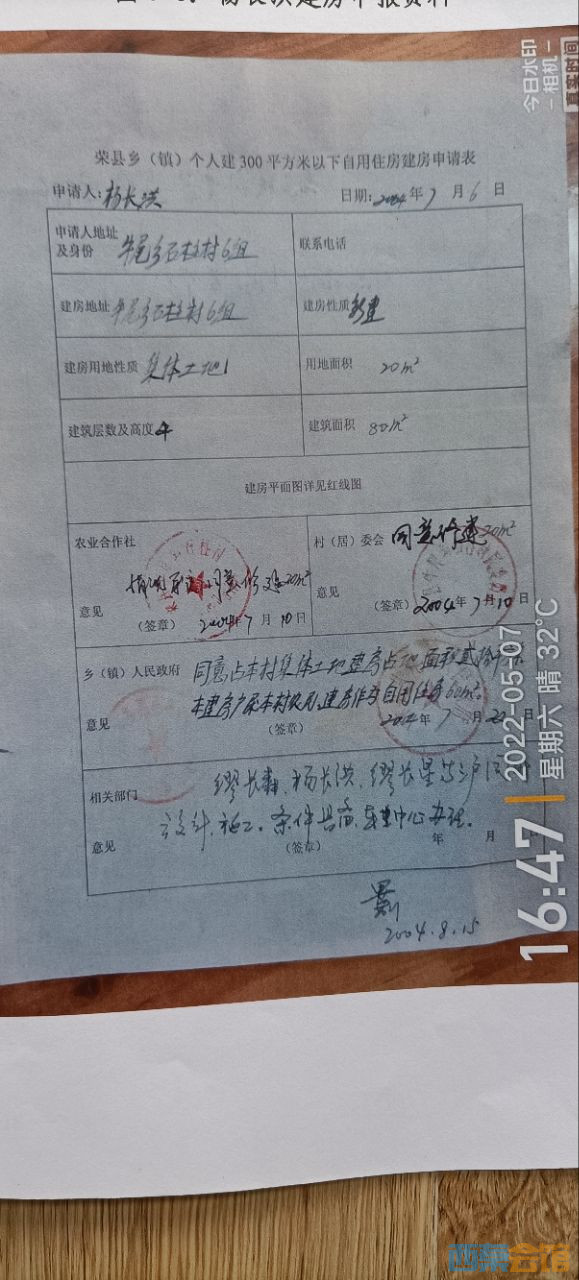 杨长洪建房申报资料
荣县乡（镇）个人建300平方米以下自用住房建房申请表
申请人：杨长洪 日期：2004年7月6日
申请人地址及身份 牛尾乡石柱村6组 联系电话
建房地址 牛尾乡石柱村6组 建房性质 新建
建房用地性质 集体土地 用地面积 20m²
建筑层数及高度 4 建筑面积 80m²
建房平面图详见红线图
农业合作社 村（居）委会 同意修建20m²
同意修建20m²
意见 意见
（签章） 2004年7月10日 （签章） 2004年7月10日
乡（镇）人民政府 同意占本村集体土地建房占地面积贰拾
本建房户系本村农户，建房作为自用住房60m²。
意见 （签章） 2004年7月22日
相关部门 缪长森、杨长洪、缪长星等三户
设计、施工。条件具备，中心办理。
意见 （签章） 年 月
2004.8.15
今日水印
-相机-
真实时间
16:47
2022-05-07
星期六 晴 32℃
西菜会馆